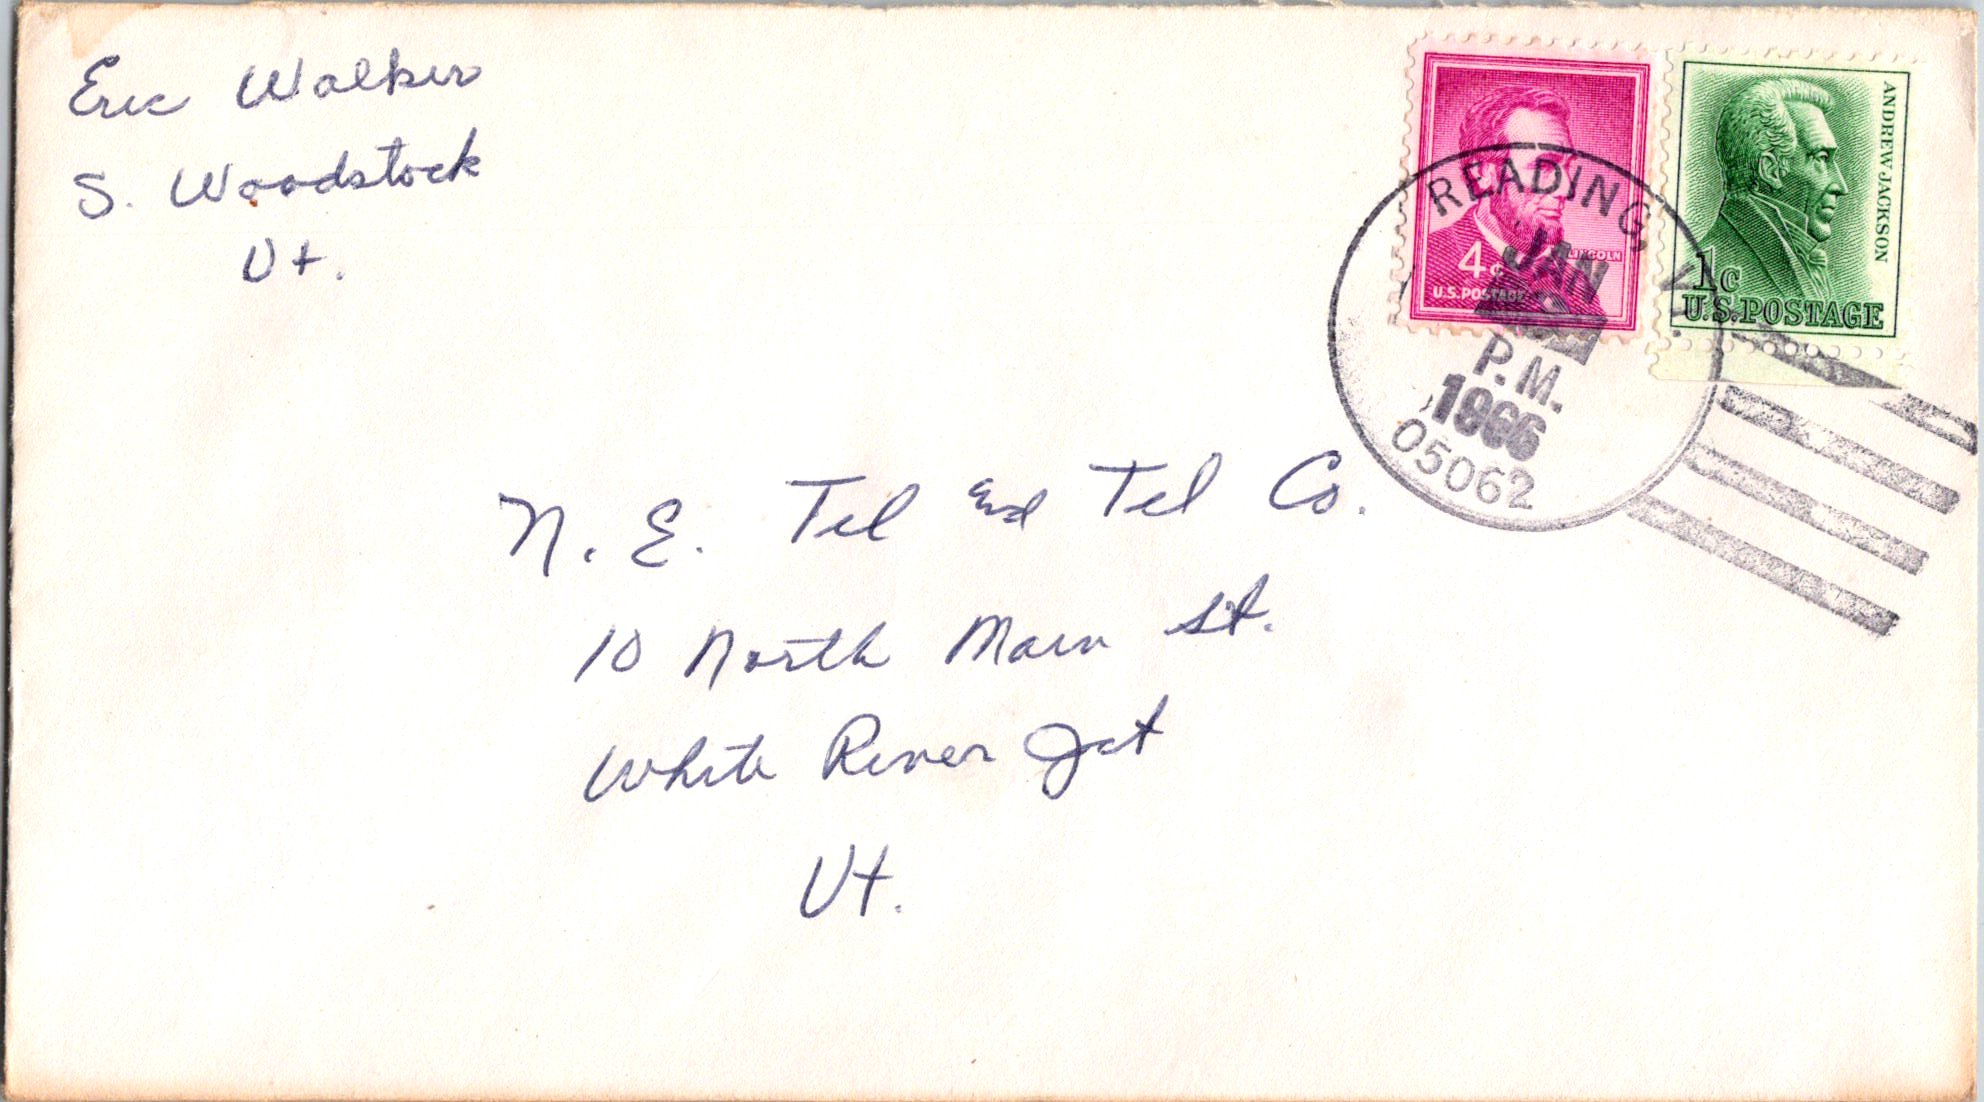 Eric Walker
S. Woodstock
Vt.
LINCOLN
4c
U.S. POSTAGE
ANDREW JACKSON
1c
U.S. POSTAGE
READING, VT.
JAN
P.M.
1966
05062
N. E. Tel and Tel Co.
10 North Main St.
White River Jct
Vt.